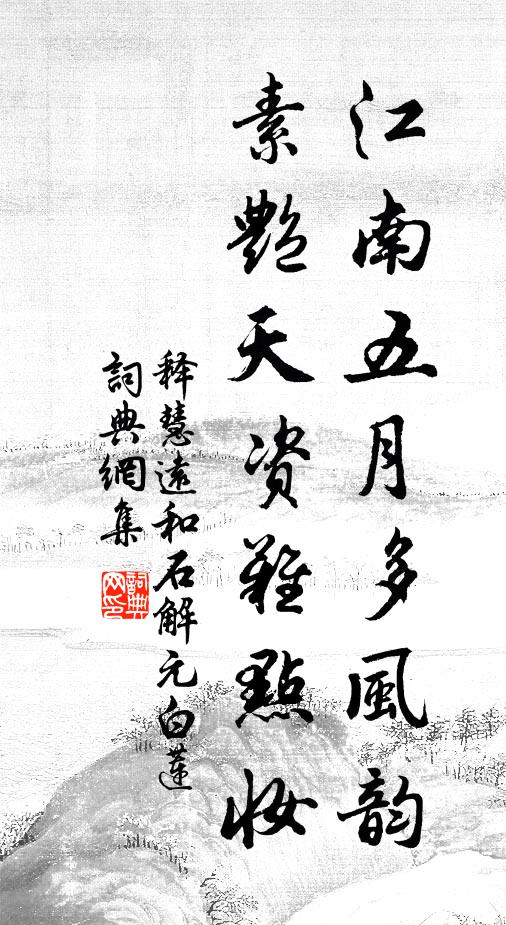 江南五月多風韵
素艷天资難點妝
释慧遠和石解元白蓮
詞典網集
詞典网印